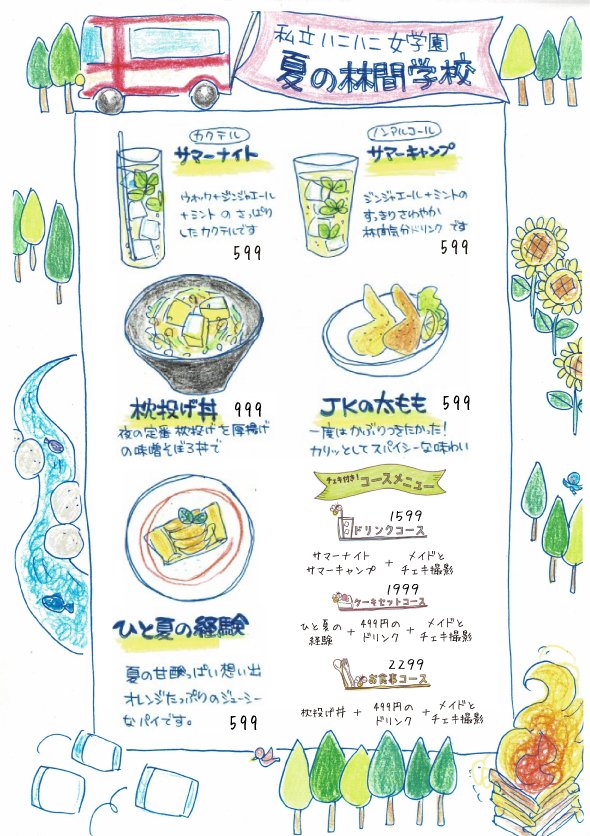 私立ハニハニ女学園
夏の林間学校
カクテル
サマーナイト
ウォッカ+ジンジャエール
+ミント の さっぱり
したカクテルです
599
ノンアルコール
サマーキャンプ
ジンジャエール+ミントの
すっきりさわやか
林間気分ドリンク です
599
枕投げ丼 999
夜の定番 枕投げ を厚揚げ
の味噌そぼろ丼で
JKの太もも 599
一度はかぶりつきたかった!
カリッとしてスパイシーな味わい
ひと夏の経験
夏の甘酸っぱい想い出
オレンジたっぷりのジューシー
なパイです。 599
チェキ付き! コースメニュー
1599
ドリンクコース
サマーナイト
サマーキャンプ + メイドと
チェキ撮影
1999
ケーキセットコース
ひと夏の
経験 + 499円の
ドリンク + メイドと
チェキ撮影
2299
お食事コース
枕投げ丼 + 499円の
ドリンク + メイドと
チェキ撮影